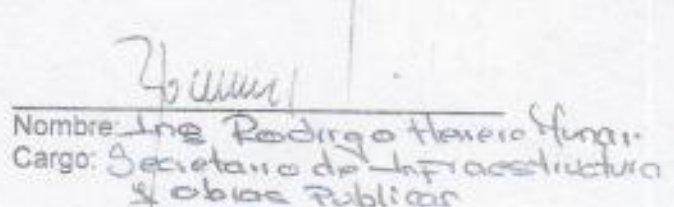 Nombre: Ing Rodrigo Herrera
Cargo: Secretario de Infraestructura
& obras Publicas